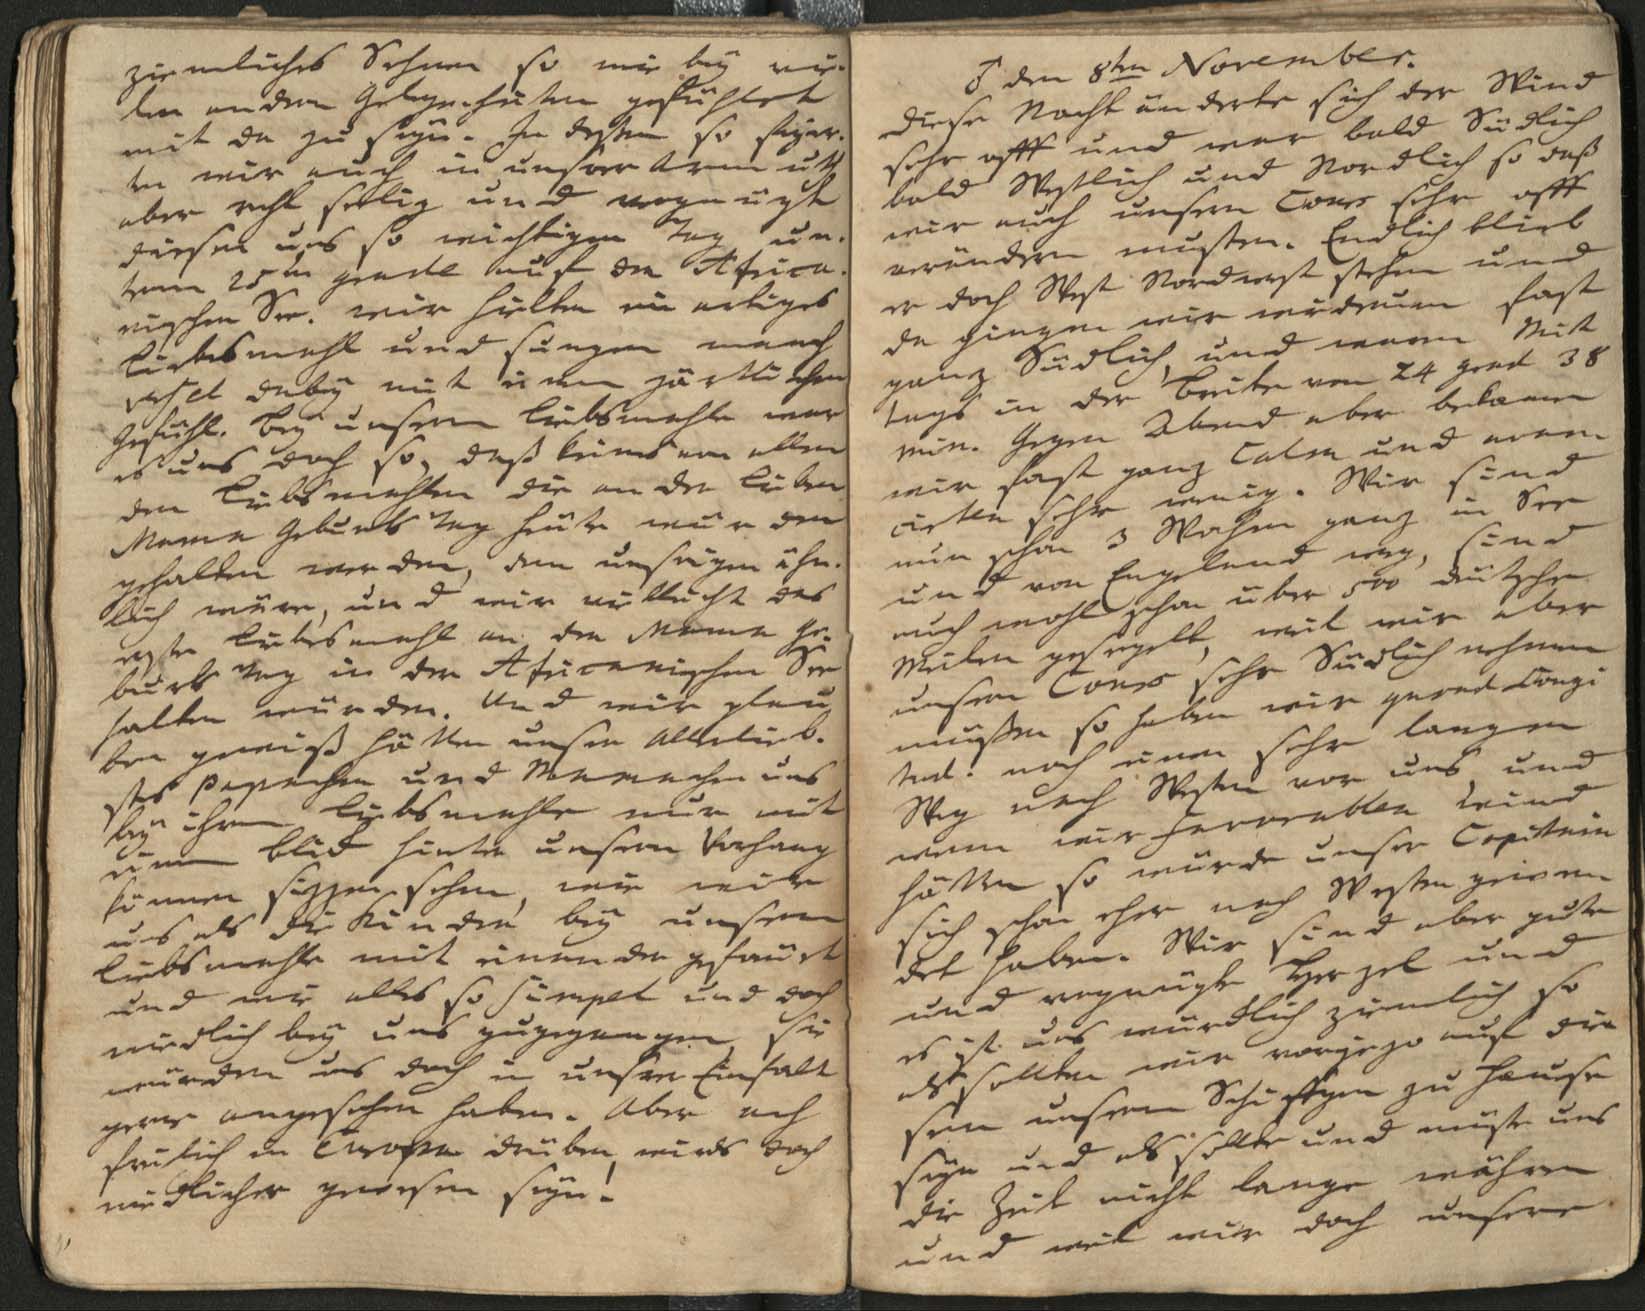 ziemliches Sehnen so wie bey vie-
len andern Gelegenheiten gefühlet
mit da zu seyn. In dessen so feyer-
ten wir auch in unsrer Armuth
aber recht selig und vergnügt
diesen uns so wichtigen Tag un-
term 25ten grade auf der Africa-
nischen See. wir hielten ein artiges
Liebesmahl und sungen manch
versel dabey mit einem zärtlichen
Gefühl. Bey unserm Liebsmahle war
es uns doch so, daß keines von allen
den Liebsmahlen die an der Lieben
Mama Geburts Tag heute würden
gehalten werden, dem unsrigen ähn-
lich wäre, und wir vielleicht das
erste Liebesmahl an der Mama Ge-
burts Tag in der Africanischen See
halten würden. Und wir glau
ben gewiß hätten unser Allerlieb-
stes Papachen und Mamachen uns
bey ihrem Liebsmahle nur mit
einem blick hinter unserm Vorhang
können sizzen sehen, wie wir
uns als die Kinder bey unserm
Liebsmahle mit einander gefreut
und wie alles so simpel und doch
niedlich bey uns zugegangen, sie
würden uns doch in unsrer Einfalt
gerne angesehen haben. Aber ach
freilich in Europa drüben wirds doch
niedlicher gewesen seyn!
♂ den 8ten November.
Diese Nacht änderte sich der Wind
sehr offt und war bald Südlich
bald Westlich und Nordlich so daß
wir auch unsern Cours sehr offt
verändern mußten. Endlich blieb
er doch West Nordwest stehen und
da gingen wir wiederum fast
ganz Südlich, und waren Mit
tags in der Breite von 24 grad 38
min. Gegen Abend aber bekamen
wir fast ganz Calm und avan-
cirten sehr wenig. Wir sind
nun schon 3 Wochen ganz in See
und von Engeland weg, sind
auch wohl schon über 500 deutsche
Meilen gesegelt, weil wir aber
unsern Cours sehr Südlich nehmen
mußten so haben wir grad Longi
tud. noch einen sehr langen
Weg nach Westen vor uns, und
wenn wir favorablen Wind
hätten so würde unser Capitain
sich schon eher nach Westen gewen
det haben. Wir sind aber gute
und vergnügte Herzel und
es ist uns würcklich ziemlich so
als sollten wir vorjezo auf die
sem unserm Schiffgen zu Hause
seyn und als sollte und müste uns
die Zeit nicht lange währen
und weil wir doch unsere